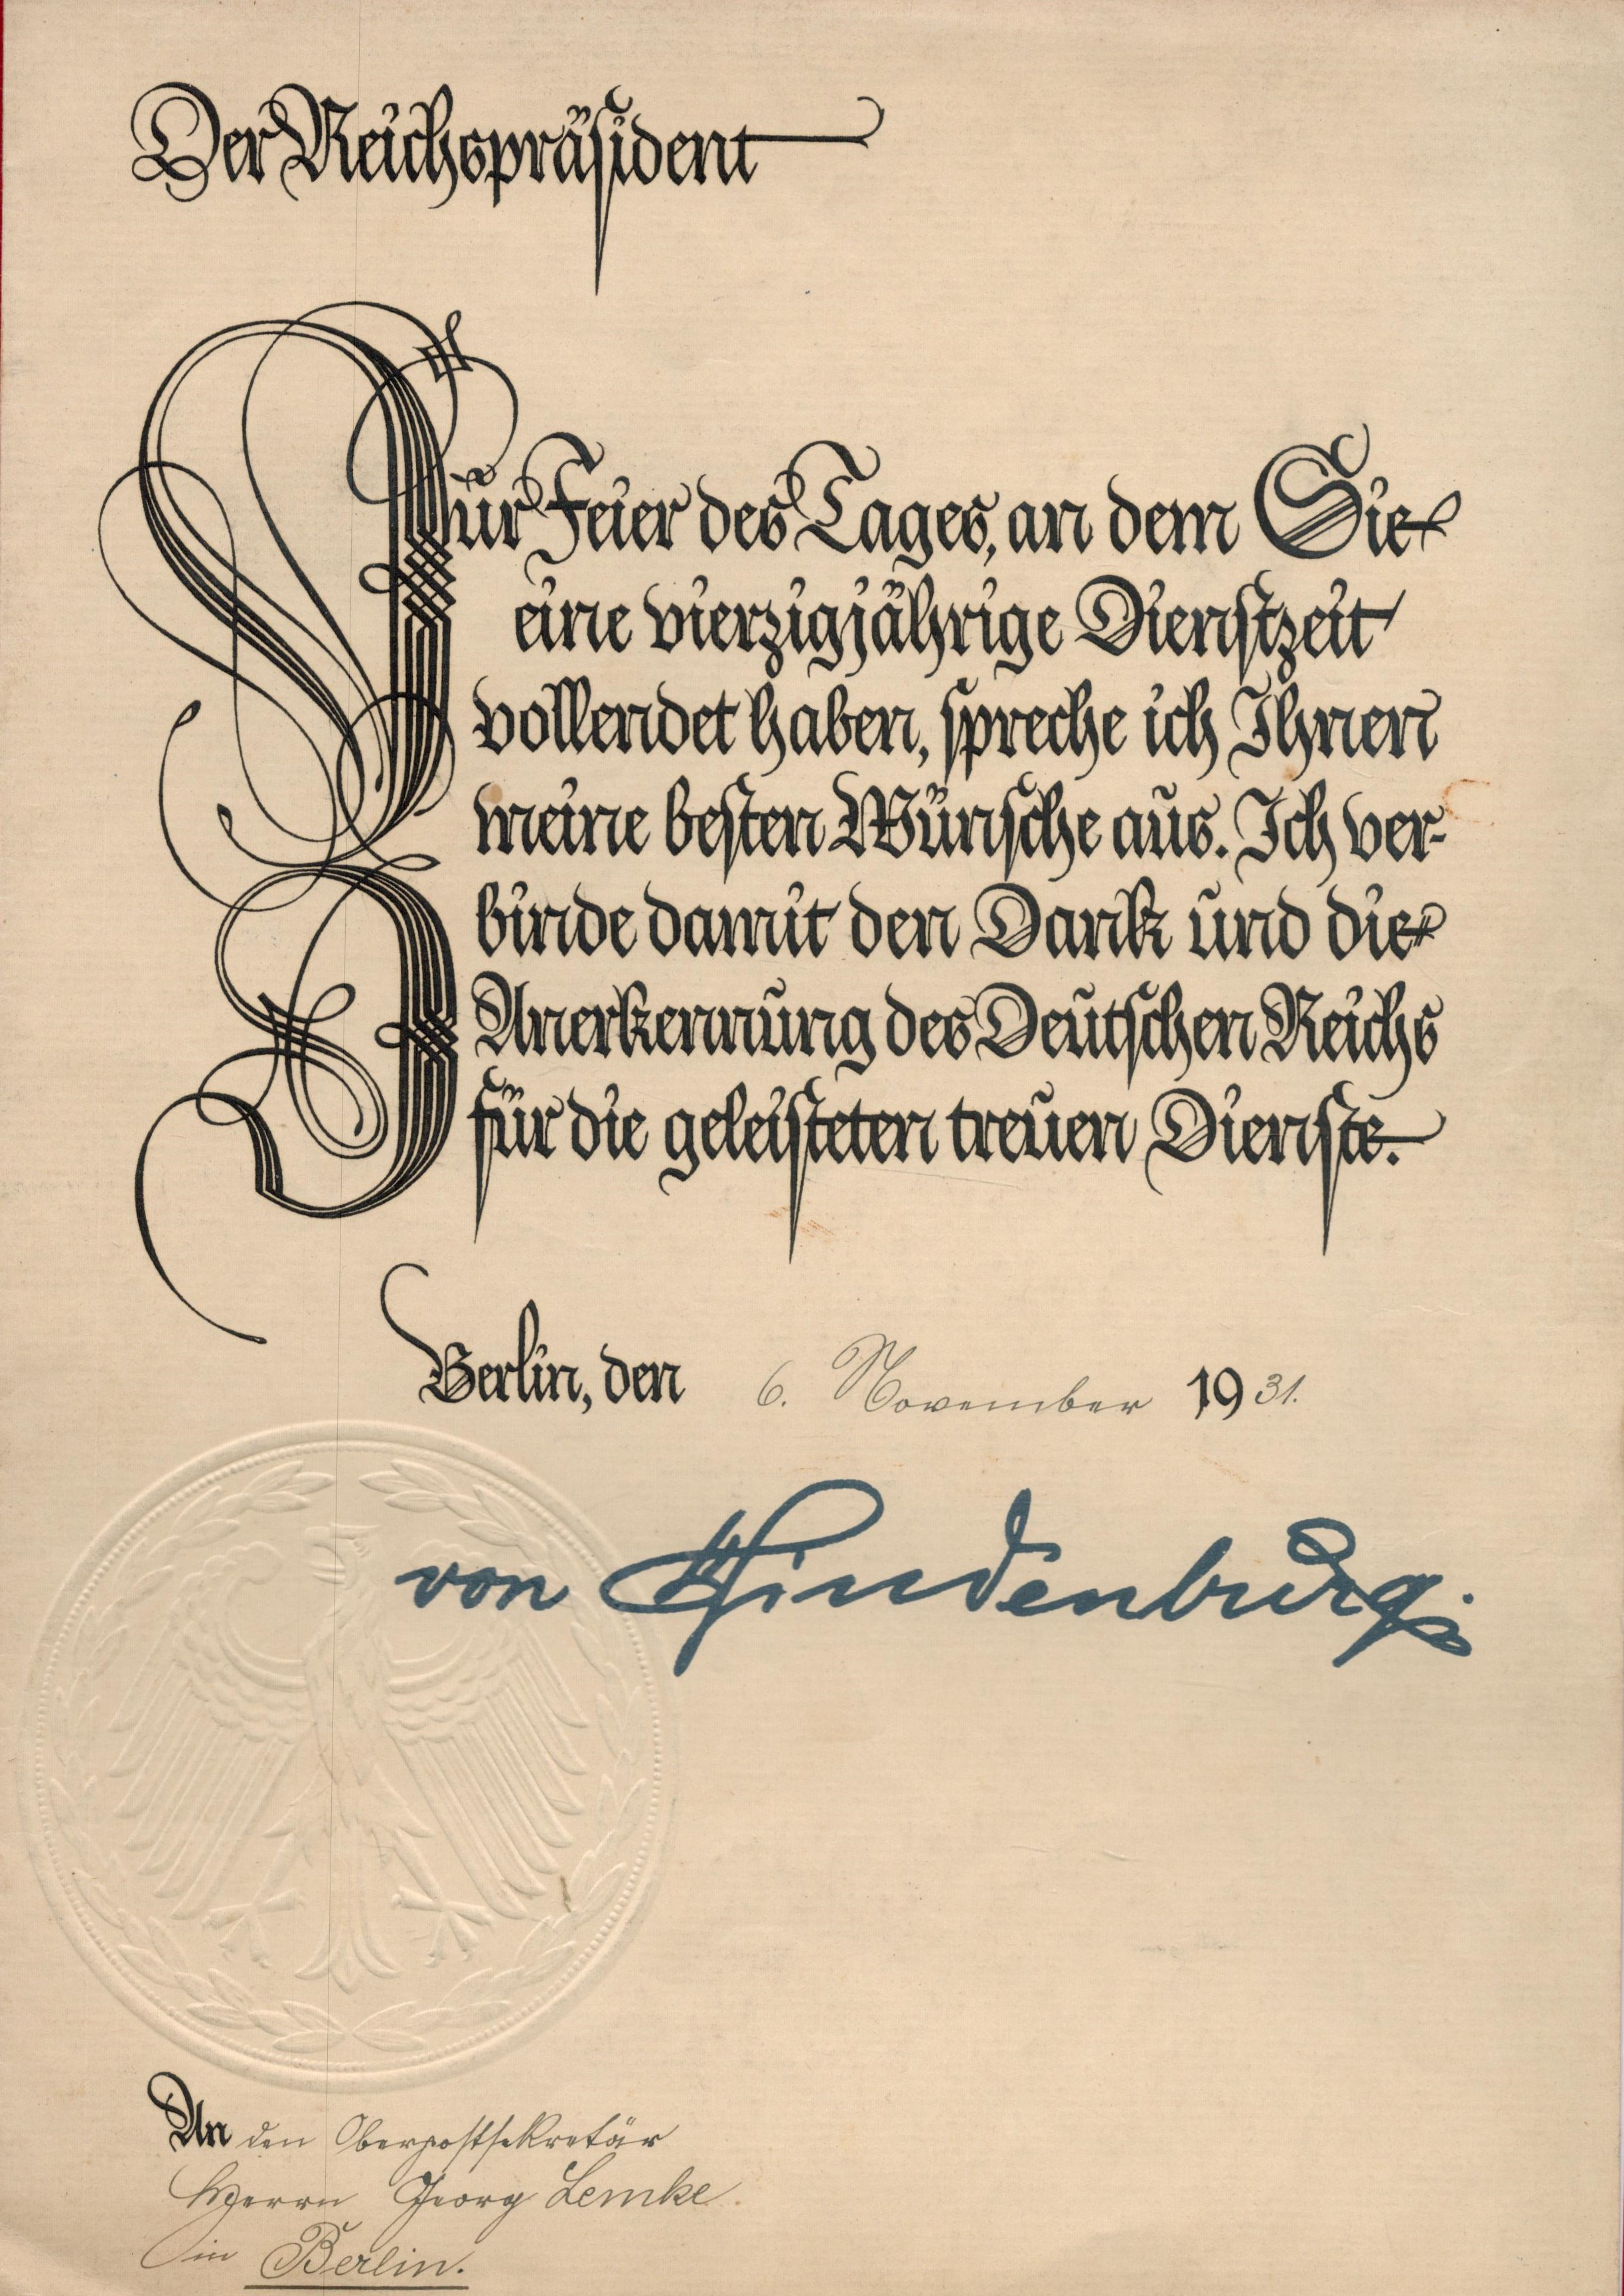 Der Reichspräsident
Zur Feier des Tages, an dem Sie
eine vierzigjährige Dienstzeit
vollendet haben, spreche ich Ihnen
meine besten Wünsche aus. Ich ver-
binde damit den Dank und die
Anerkennung des Deutschen Reichs
für die geleisteten treuen Dienste.
Berlin, den 6. November 1931.
von Hindenburg.
An den Oberpostsekretär
Herrn Georg Lemke
in Berlin.